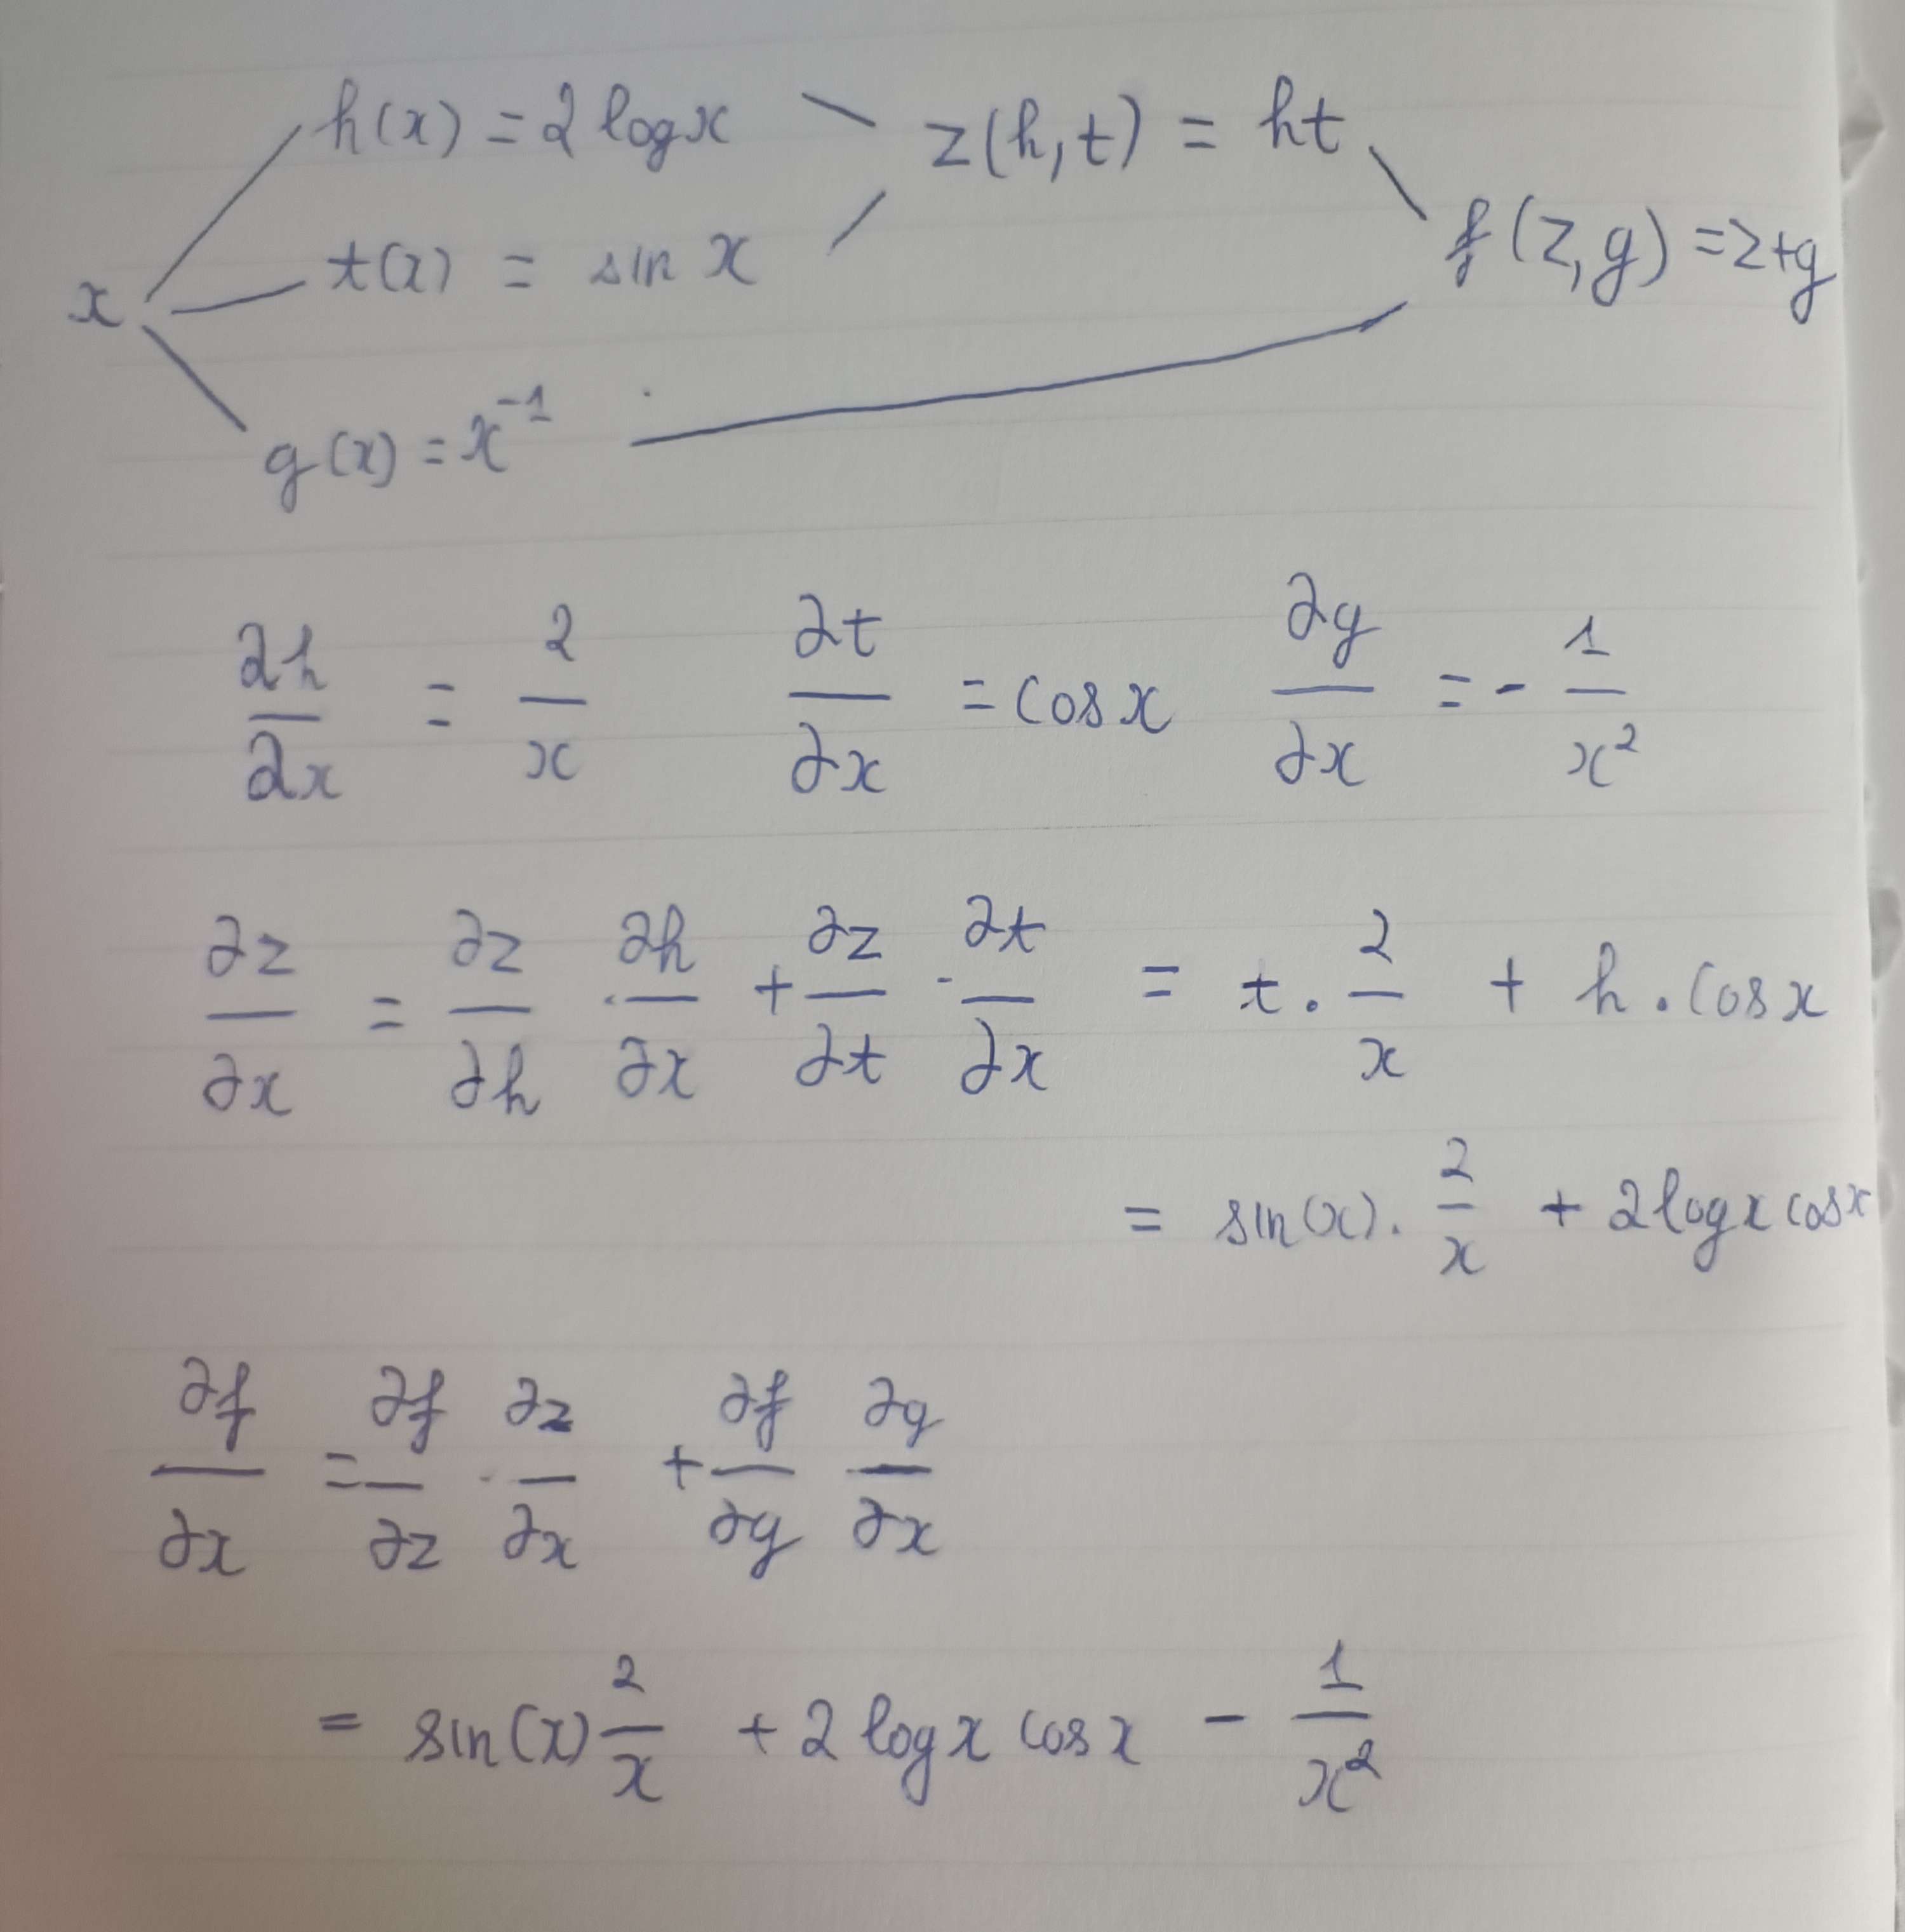 h(x) = 2 log x
z(h,t) = ht
t(x) = sin x
f(z,g) = z+g
x
g(x) = x⁻¹
∂h/∂x = 2/x ∂t/∂x = cos x ∂g/∂x = - 1/x²
∂z/∂x = ∂z/∂h · ∂h/∂x + ∂z/∂t · ∂t/∂x = t · 2/x + h . cos x
= sin(x) . 2/x + 2 log x cos x
∂f/∂x = ∂f/∂z · ∂z/∂x + ∂f/∂g ∂g/∂x
= sin(x) 2/x + 2 log x cos x - 1/x²